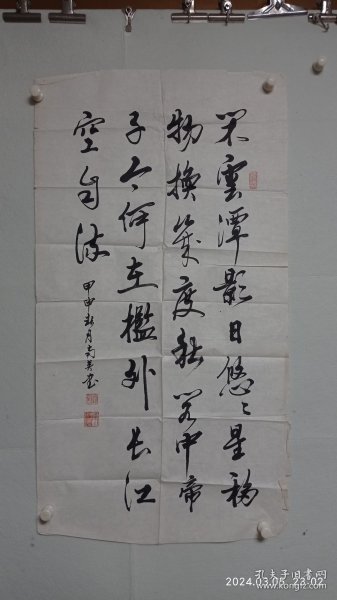 闲雲潭影日悠々星移
物換幾度秋阁中帝
子今何在檻外长江
空自流
甲申秋月
书
2024.03.05 23:02
孔夫子旧书网